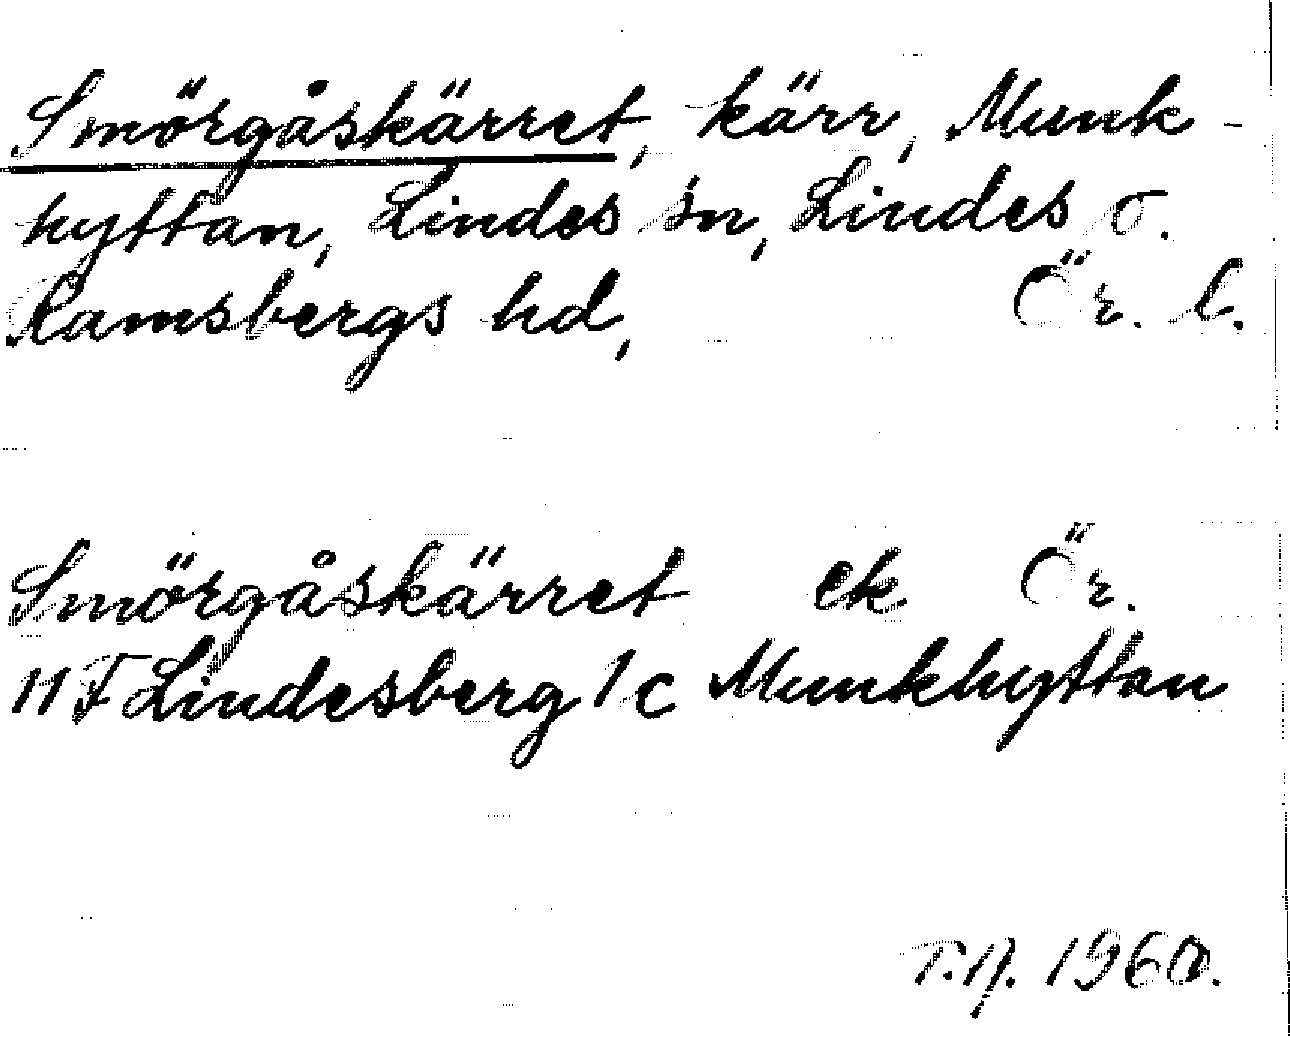 Smörgåskärret, kärr, Munk-
hyttan, Lindes sn, Lindes o.
Ramsbergs hd, Ör. l.
Smörgåskärret ek. Ör.
11 F Lindesberg 1 c Munkhyttan
1960.